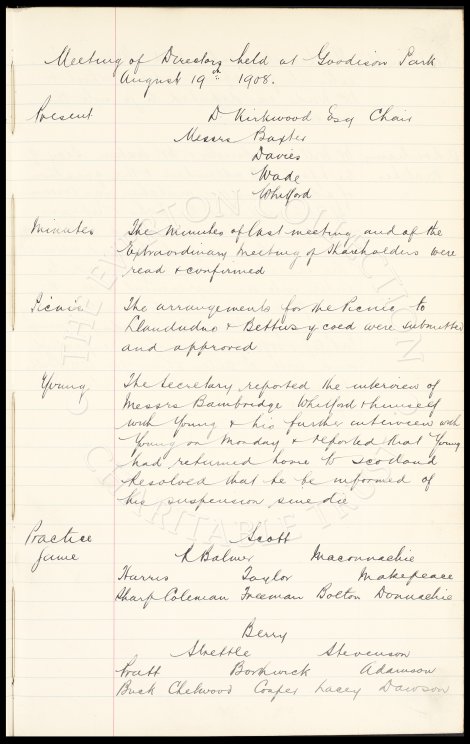 Meeting of Directors held at Goodison Park
August 19th 1908.
Present D Kirkwood Esq Chair
Messrs Baxter
Davies
Wade
Whitford
Minutes The Minutes of last meeting and of the
Extraordinary Meeting of Shareholders were
read & confirmed
Picnic The arrangements for the Picnic to
Llandudno & Bettws y coed were submitted
and approved
Young The Secretary reported the interview of
Messrs Bainbridge Whitford & himself
with Young & his further interview with
Young on Monday & reported that Young
had returned home to Scotland
Resolved that he be informed of
his suspension sine die
Practice Scott
Game R Balmer Maconnachie
Harris Taylor Makepeace
Sharp Coleman Freeman Bolton Donnachie
Berry
Strettle Stevenson
Pratt Borthwick Adamson
Buck Chetwood Cooper Lacey Dawson
THE EVERTON COLLECTION
CHARITABLE TRUST